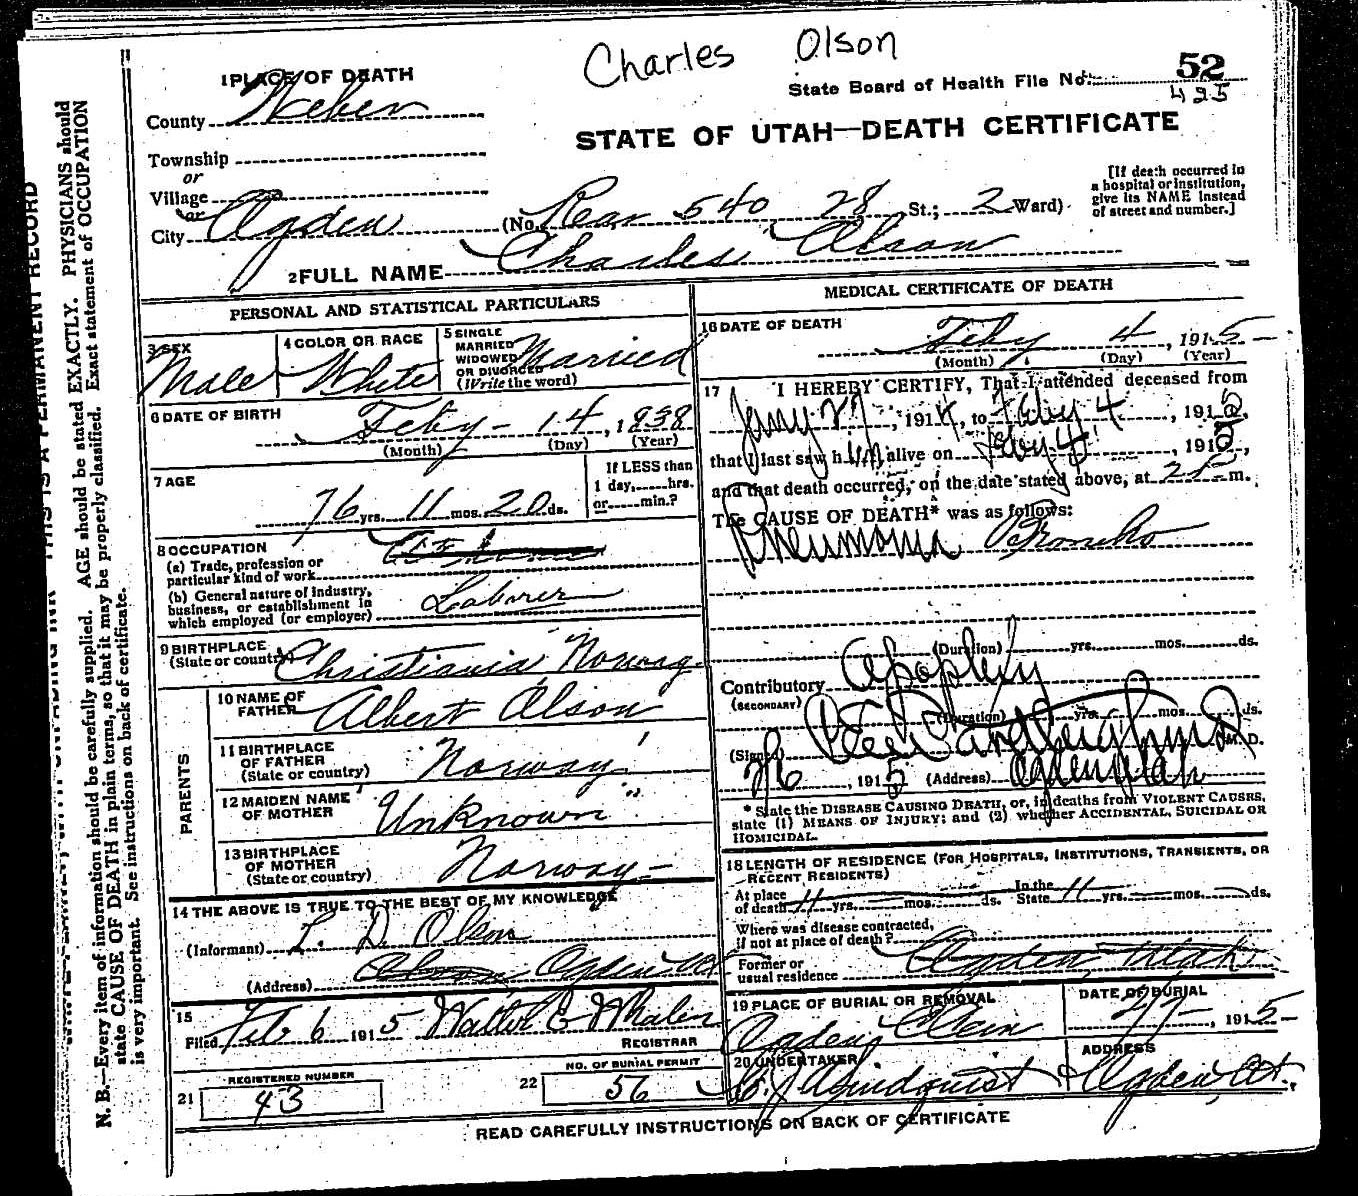 Charles Olson
1 PLACE OF DEATH
State Board of Health File No. 52
425
County Weber
STATE OF UTAH—DEATH CERTIFICATE
Township
or
Village
or
City Ogden (No. Rear 540 28 St.; 2 Ward)
[If death occurred in a hospital or institution, give its NAME instead of street and number.]
2 FULL NAME Charles Olson
PERSONAL AND STATISTICAL PARTICULARS
3 SEX Male
4 COLOR OR RACE White
5 SINGLE MARRIED WIDOWED OR DIVORCED (Write the word) Married
6 DATE OF BIRTH Feby - 14, 1838
(Month) (Day) (Year)
7 AGE 76 yrs. 11 mos. 20 ds.
If LESS than 1 day, hrs. or min.?
8 OCCUPATION
(a) Trade, profession or particular kind of work
(b) General nature of industry, business, or establishment in which employed (or employer) Laborer
9 BIRTHPLACE (State or country) Christiania Norway
PARENTS
10 NAME OF FATHER Albert Olson
11 BIRTHPLACE OF FATHER (State or country) Norway
12 MAIDEN NAME OF MOTHER Unknown
13 BIRTHPLACE OF MOTHER (State or country) Norway
14 THE ABOVE IS TRUE TO THE BEST OF MY KNOWLEDGE
(Informant) L. D. Olson
(Address) Ogden Ut
15
Filed Feb 6 1915 Walter E Whalen
REGISTRAR
21 REGISTERED NUMBER 43
22 NO. OF BURIAL PERMIT 56
MEDICAL CERTIFICATE OF DEATH
16 DATE OF DEATH Feby 4, 1915
(Month) (Day) (Year)
17 I HEREBY CERTIFY, That I attended deceased from
, 191 , to Feby 4, 1915,
that I last saw him alive on Feby 4, 1915,
and that death occurred, on the date stated above, at m.
The CAUSE OF DEATH* was as follows:
Pneumonia Broncho
(Duration) yrs. mos. ds.
Contributory Apoplexy
(SECONDARY)
(Duration) yrs. mos. ds.
(Signed) M. D.
2/6, 1915 (Address) Ogden Utah
* State the DISEASE CAUSING DEATH, or, in deaths from VIOLENT CAUSES, state (1) MEANS OF INJURY; and (2) whether ACCIDENTAL, SUICIDAL OR HOMICIDAL.
18 LENGTH OF RESIDENCE (FOR HOSPITALS, INSTITUTIONS, TRANSIENTS, OR RECENT RESIDENTS)
At place of death 11 yrs. mos. ds. In the State 11 yrs. mos. ds.
Where was disease contracted, if not at place of death?
Former or usual residence Ogden, Utah
19 PLACE OF BURIAL OR REMOVAL Ogden
DATE OF BURIAL 2/7, 1915
20 UNDERTAKER Lindquist
ADDRESS Ogden Ut.
READ CAREFULLY INSTRUCTIONS ON BACK OF CERTIFICATE
THIS IS A PERMANENT RECORD
N. B.—Every item of information should be carefully supplied. AGE should be stated EXACTLY. PHYSICIANS should
state CAUSE OF DEATH in plain terms, so that it may be properly classified. Exact statement of OCCUPATION
is very important. See instructions on back of certificate.